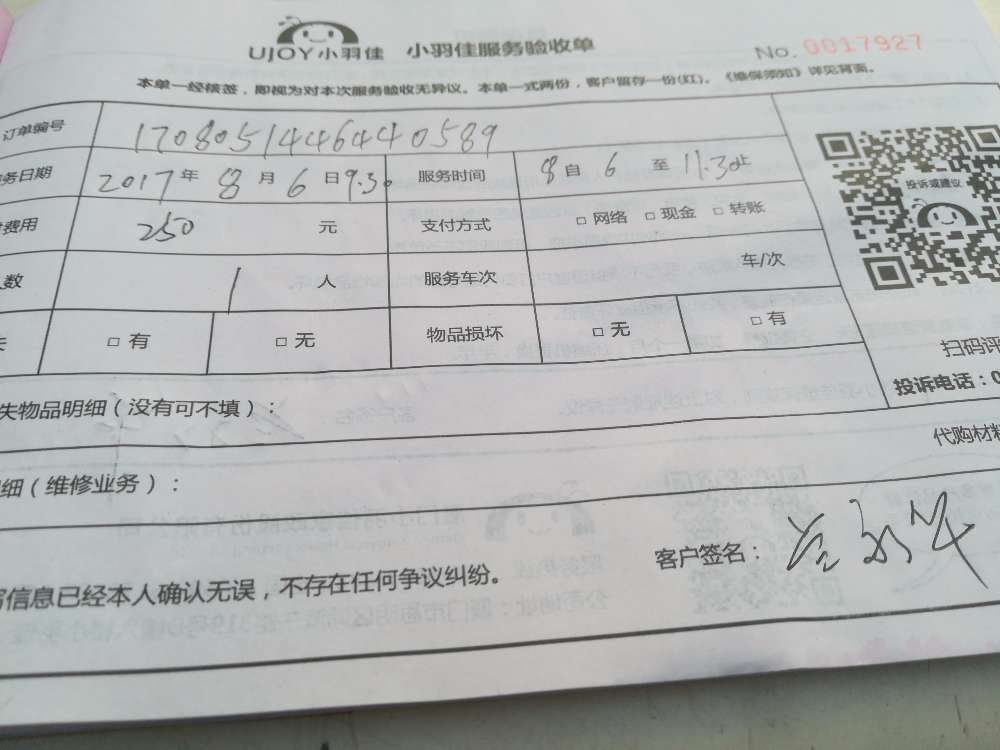 UJOY小羽佳 小羽佳服务验收单
No. 0017927
本单一经核签，即视为对本次服务验收无异议。本单一式两份，客户留存一份(红)。《维保须知》详见背面。
订单编号 170805144644 0589
务日期 2017年 8 月 6 日9.30 服务时间 8 自 6 至 11.30止
费用 250 元 支付方式 □ 网络 □ 现金 □ 转账
人数 1 人 服务车次 车/次
失 □ 有 □ 无 物品损坏 □ 无 □ 有
投诉或建议
扫码评
投诉电话：0
失物品明细（没有可不填）：
代购材料
细（维修业务）：
客户签名：
写信息已经本人确认无误，不存在任何争议纠纷。